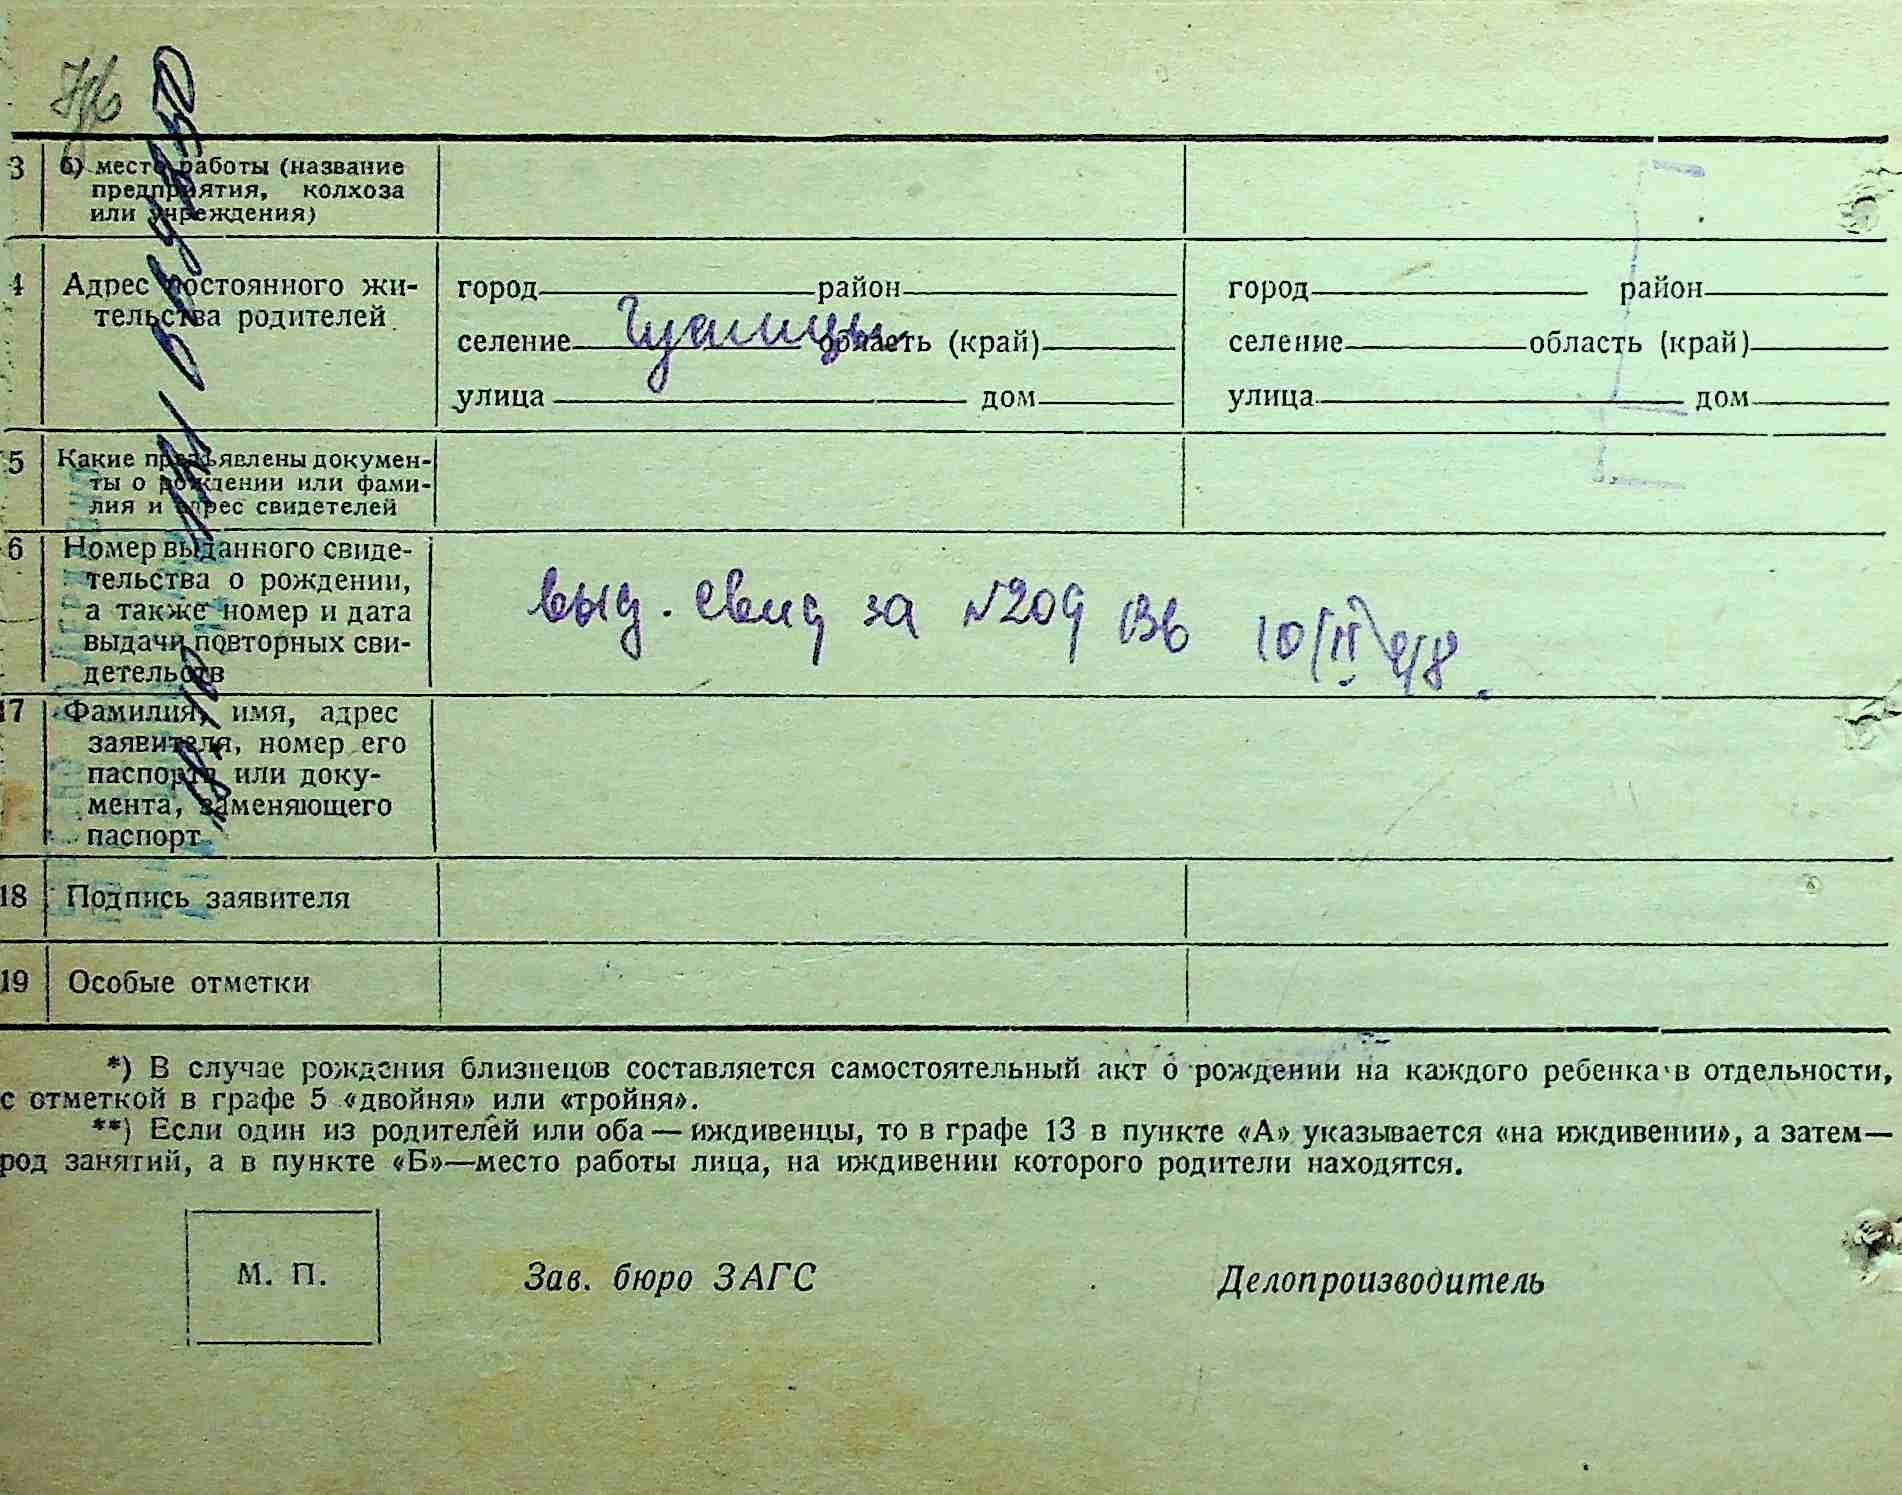 3 б) место работы (название
предприятия, колхоза
или учреждения)
4 Адрес постоянного жи-
тельства родителей
город район
селение область (край)
улица дом
город район
селение область (край)
улица дом
5 Какие предъявлены докумен-
ты о рождении или фами-
лия и адрес свидетелей
6 Номер выданного свиде-
тельства о рождении,
а также номер и дата
выдачи повторных сви-
детельств
выд. свид за №209 10/II 48.
17 Фамилия, имя, адрес
заявителя, номер его
паспорта или доку-
мента, заменяющего
паспорт
18 Подпись заявителя
19 Особые отметки
*) В случае рождения близнецов составляется самостоятельный акт о рождении на каждого ребенка в отдельности,
с отметкой в графе 5 «двойня» или «тройня».
**) Если один из родителей или оба — иждивенцы, то в графе 13 в пункте «А» указывается «на иждивении», а затем—
род занятий, а в пункте «Б»—место работы лица, на иждивении которого родители находятся.
М. П. Зав. бюро ЗАГС Делопроизводитель